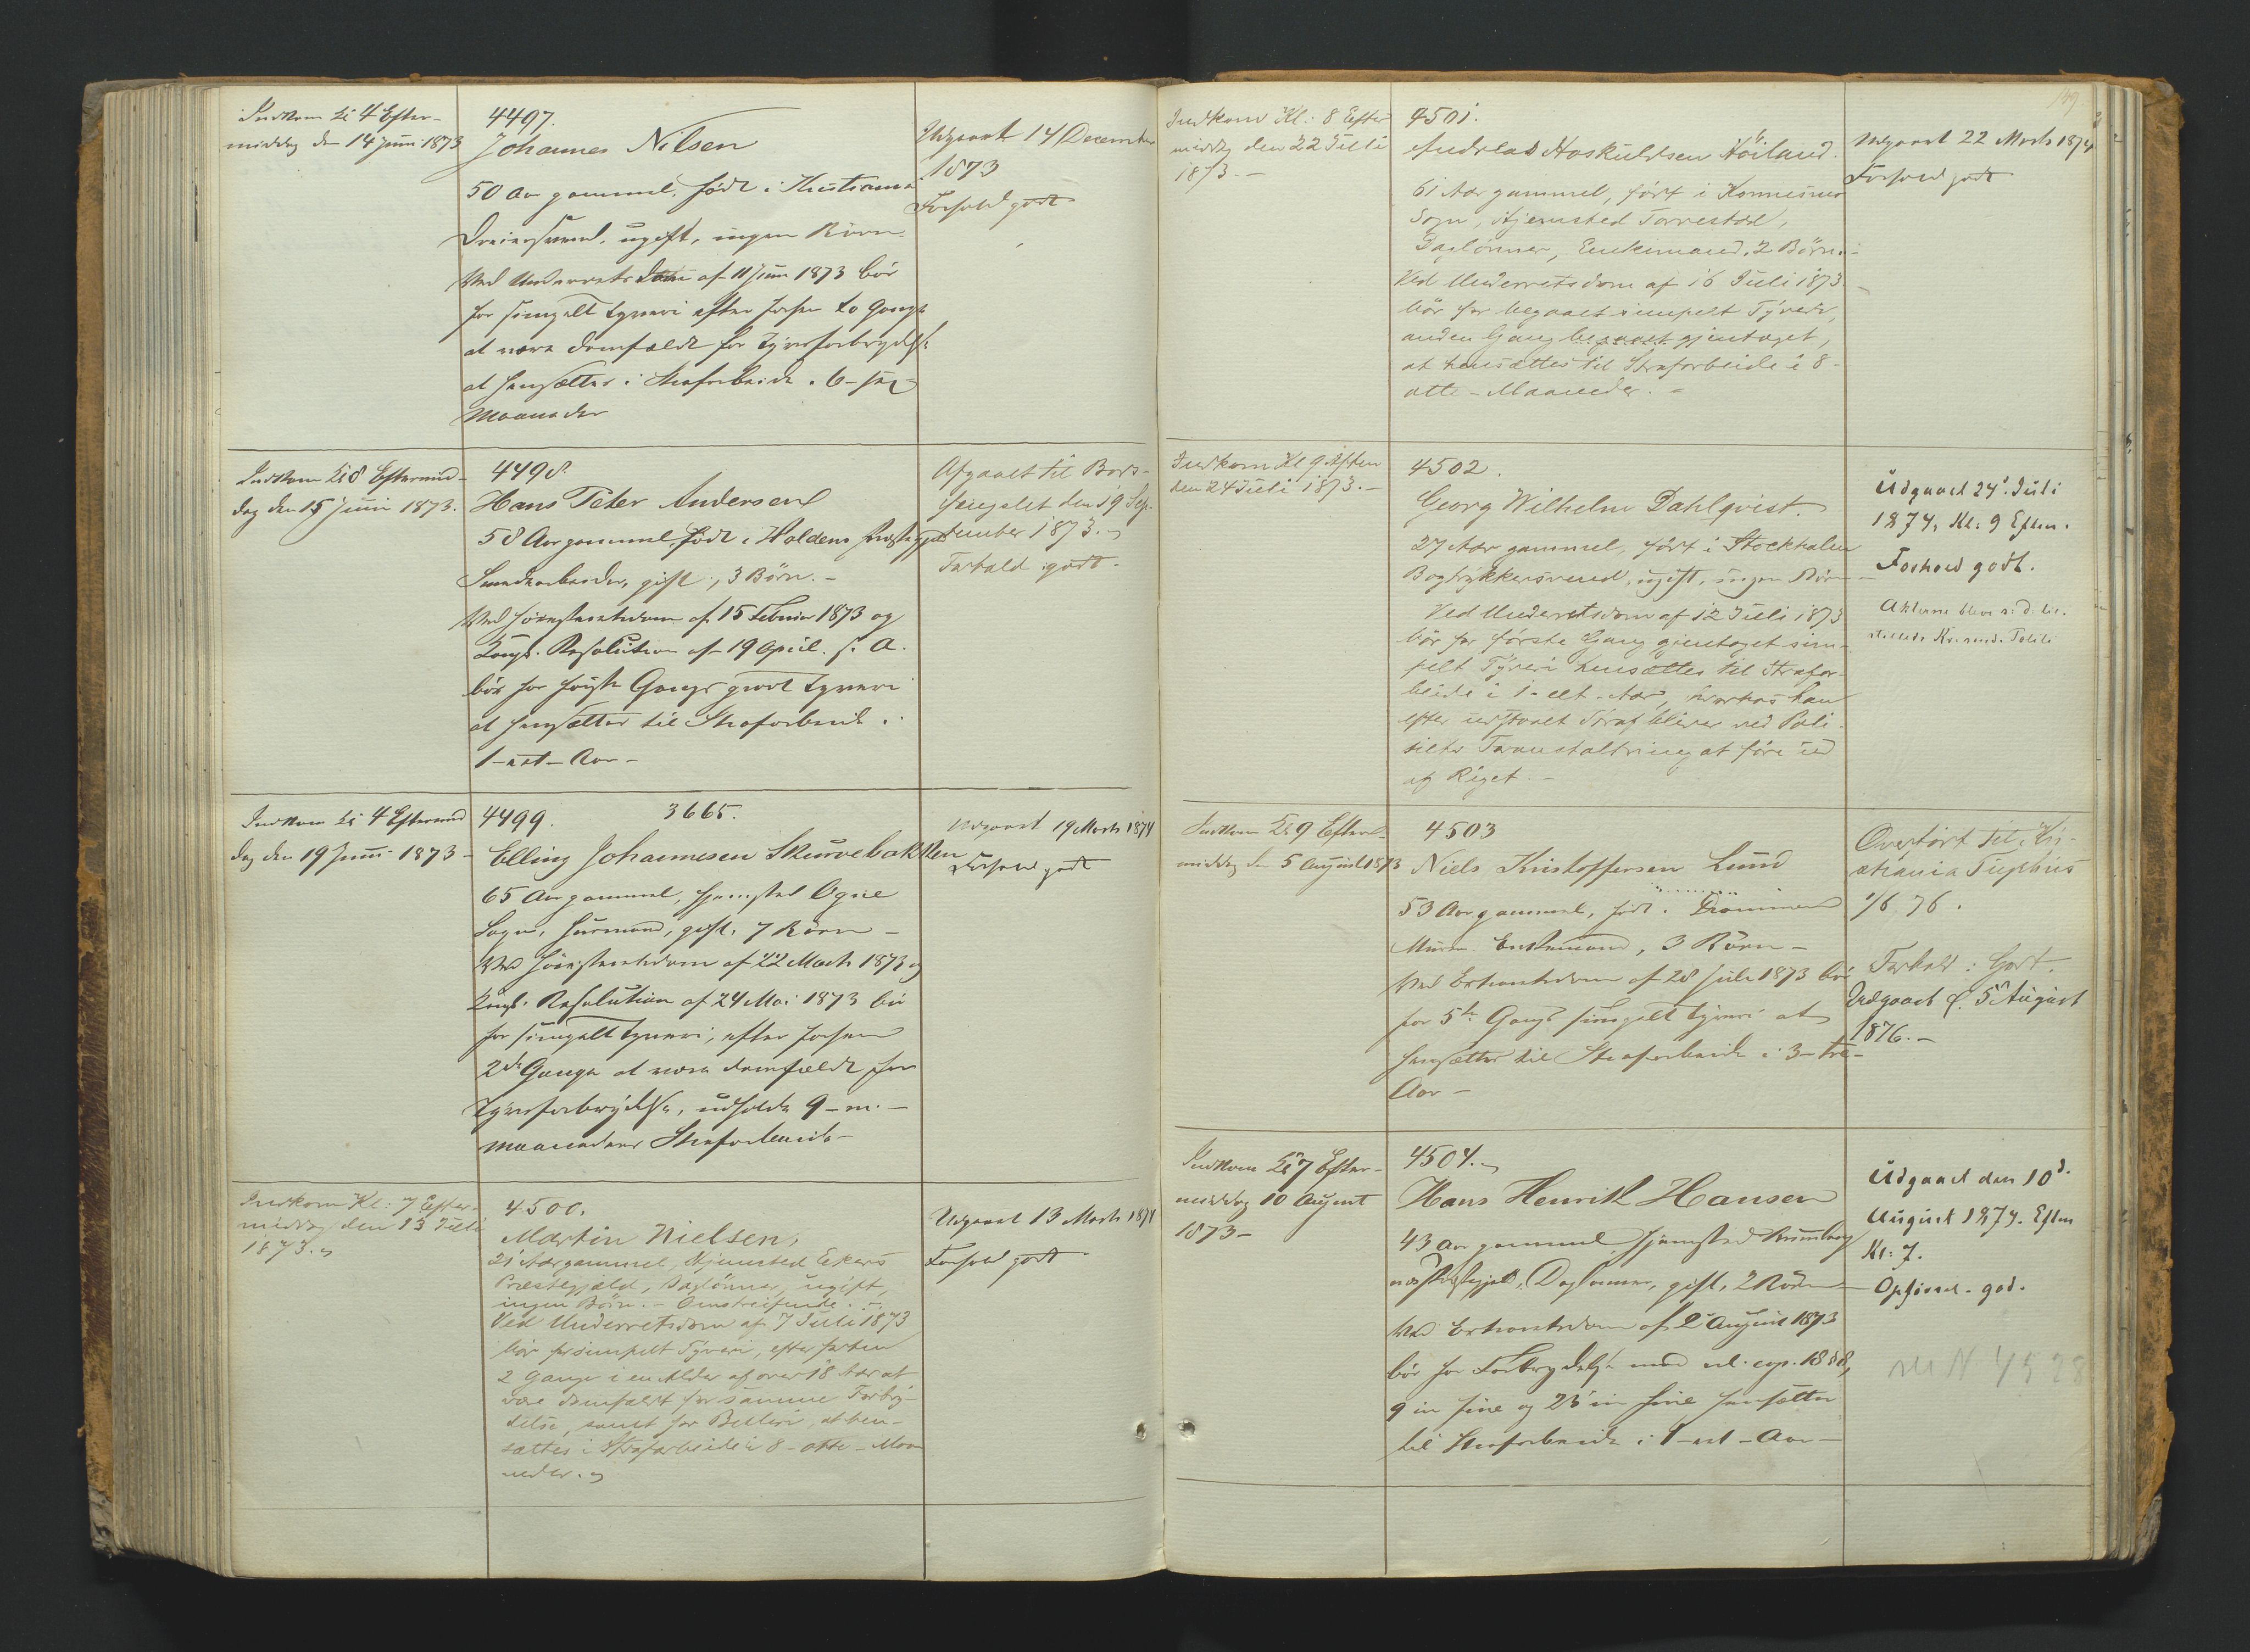 Indkom Kl 4 Efter-
middag den 14 Juni 1873
4497.
Johannes Nilsen
50 Aar gammel, født i Kristiania
Dreiersvend, ugift, ingen Börn
Ved Underrets Dom af 11 Juni 1873 bör
for simpelt Tyveri efter forhen to Gange
at være domfældt for Tyvsforbrydelse
at hensættes i Strafarbeide i 6 - sex
Maaneder
Udgaaet 14 December
1873
Forhold godt
Indkom Kl 8 Eftermid-
dag den 15 Juni 1873.
4498.
Hans Peter Andersen
58 Aar gammel, født i Holdens Præstegjeld
gift, 3 Börn. -
Ved Høiesteretsdom af 15 Februar 1873 og
Kongl. Resolution af 19 April s. A.
bör for første Gangs grovt Tyveri
at hensættes til Strafarbeide i
1 - eet - Aar -
Afgaaet til Bods-
fængslet den 19 Sep-
tember 1873. -
Forhold godt.
Indkom Kl 4 Eftermid
dag den 19 Juni 1873 -
4499. 3665.
Elling Johannesen Skurvebakken
65 Aar gammel, Hjemsted Ogne
Sogn, Husmand, gift, 7 Börn -
Ved Høiesteretsdom af 22 Marts 1873 og
Kongl. Resolution af 24 Mai 1873 bör
for simpelt Tyveri, efter forhen
2de Gange at være domfældt for
Tyvsforbrydelse, udholde 9 - ni -
Maaneders Strafarbeide -
Udgaaet 19 Marts 1874
Forhold godt
Indkom Kl: 7 Efter-
middag den 13 Juli
1873.
4500.
Martin Nielsen,
21 Aar gammel, Hjemsted Ekers
Præstegjæld, Daglönner, ugift,
ingen Börn. - Omstreifende. -
Ved Underretsdom af 7 Juli 1873
bör for simpelt Tyveri, efter forhen
2 Gange i en Alder af over 18 Aar at
være domfældt for samme Forbry-
delse, samt for Betleri, at hen-
sættes i Strafarbeide i 8 - otte - Maa
neder.
Udgaaet 13 Marts 1874
Forhold godt
149
Indkom Kl: 8 Efter
middag den 22 Juli
1873. -
4501.
Andreas Hoskuldsen Höiland.
61 Aar gammel, födt i
Sogn, Hjemsted Torrestad,
Daglönner, Enkemand, 2 Börn. -
Ved Underretsdom af 16 Juli 1873
bör for begaaet simpelt Tyveri,
anden Gang begaaet gjentaget,
at hensættes til Strafarbeide i 8 -
otte - Maaneder. -
Udgaaet 22 Marts 1874
Forhold godt
Indkom Kl 9 Aften
den 24 Juli 1873. -
4502.
Georg Wilhelm Dahlqvist.
27 Aar gammel, födt i Stockholm
Bogtrykkersvend, ugift, ingen Börn
Ved Underretsdom af 12 Juli 1873
bör for förste Gang gjentaget sim-
pelt Tyveri hensættes til Strafar-
beide i 1 - eet - Aar, hvorhos han
efter udstaaet Straf bliver ved Poli-
tiets Foranstaltning at före ud
af Riget. -
Udgaaet 24. Juli
1874, Kl: 9 Efter.
Forhold godt.
Indkom Kl 9 Efter-
middag den 5 August 1873
4503
Niels Kristoffersen Lund
53 Aar gammel, født i Drammen
Murer. Enkemand, 3 Börn -
Ved Extraretsdom af 28 Juli 1873 bör
for 5te Gangs simpelt Tyveri at
hensættes til Strafarbeide i 3 - tre -
Aar -
Overfört til Kri-
stiania Tugthus
1/6 76.
Forhold: Godt.
Udgaaet d. 5 August
1876. -
Indkom Kl 7 Efter-
middag 10 August
1873 -
4504.
Hans Henrik Hansen
43 Aar gammel, Hjemsted
Præstegjeld, Daglønner, gift, 2 Börn
Ved Extraretsdom af 2 August 1873
bör for Forbrydelse mod cap. 18 § 8,
9 in fine og 23 in fine hensættes
til Strafarbeide i 1 - eet - Aar -
Udgaaet den 10d.
August 1874. Efter
Kl: 7.
Opförsel - god.
N 4528